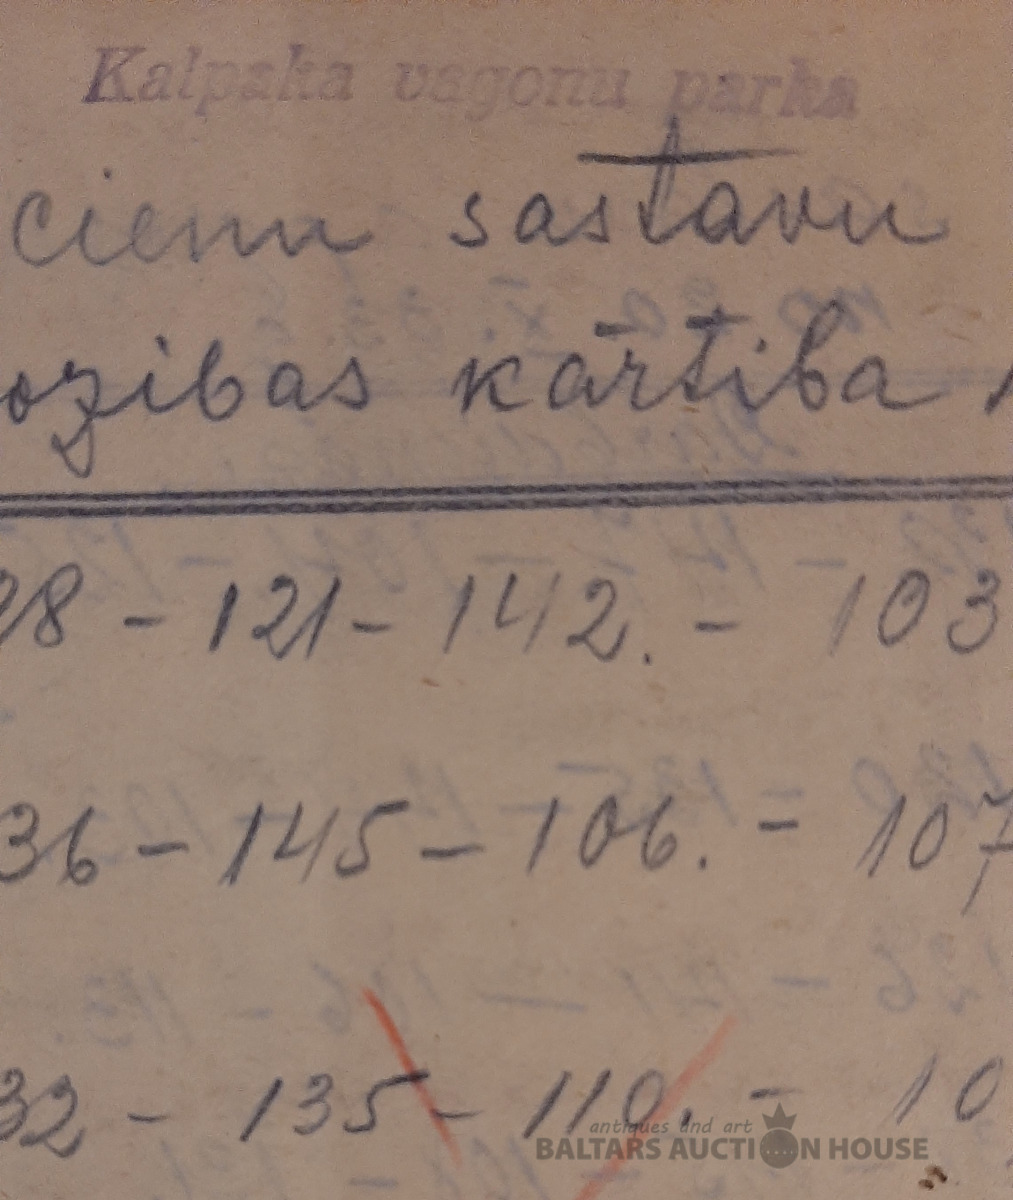 Kalpaka vagonu parka
ciemu sastavu
ozibas kārtība
28 - 121 - 142. - 103
36 - 145 - 106. = 107
32 - 135 - 110. - 10
antiques and art
BALTARS AUCTION HOUSE